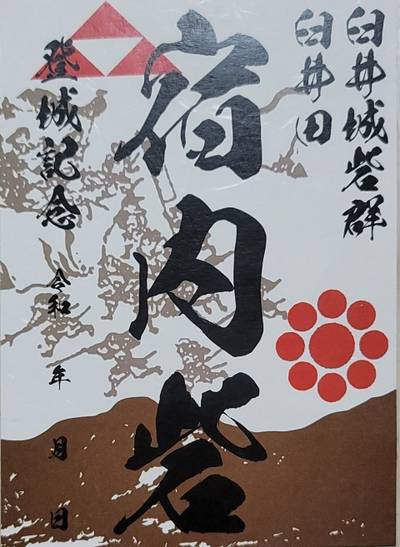 臼井城砦群
臼井田
宿内砦
登城記念
令和 年 月 日